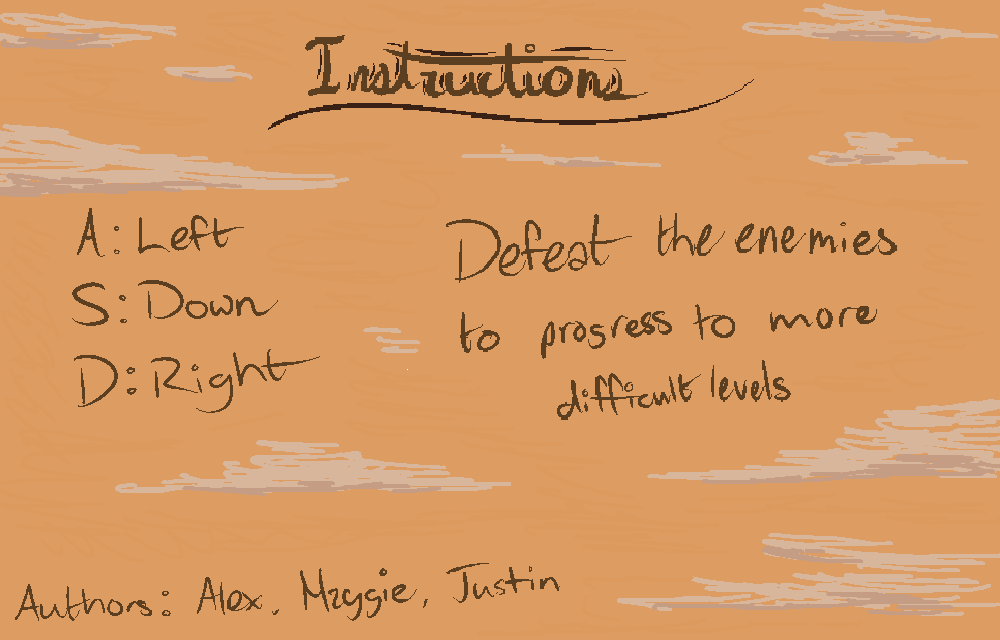 Instructions
A: Left
S: Down
D: Right
Defeat the enemies
to progress to more
difficult levels
Authors: Alex, Maggie, Justin